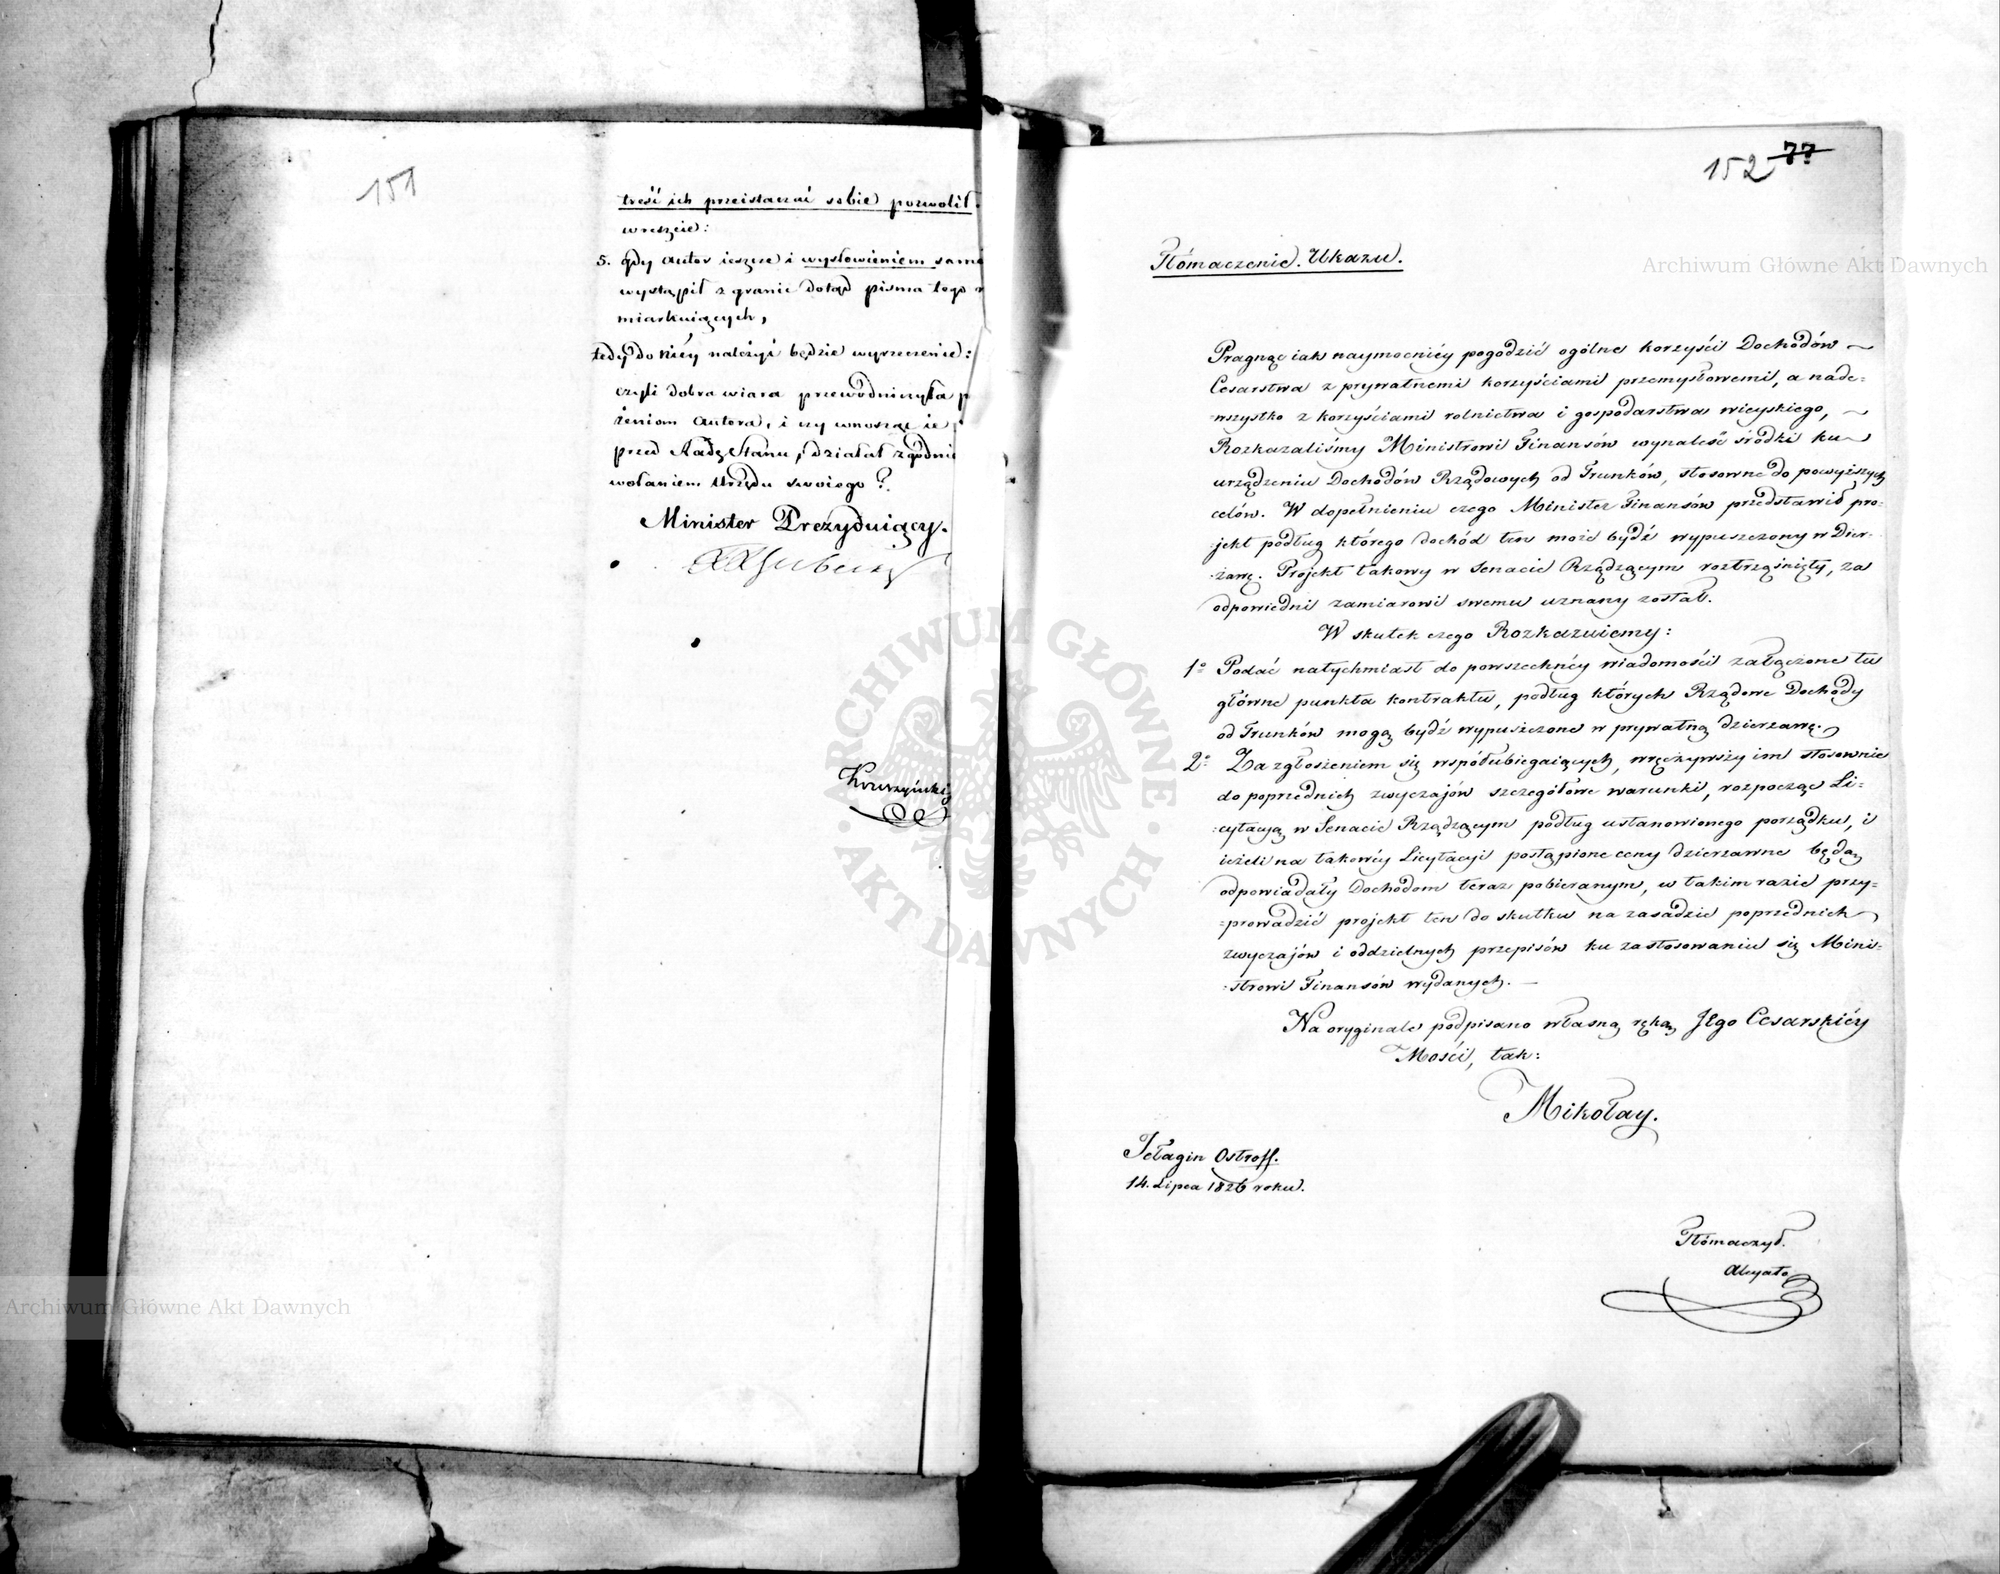 151
treść ich przeistaczać sobie pozwolił.
wreszcie:
5. gdy autor ieszcze i wysłowieniem
wystąpił z granic dotąd pisma tego
miarkuiących,
tedy do Niéy należyć będzie wyrzeczenie:
czyli dobra wiara przewodniczyła
żeniom autora, i czy wnosząc ie
przed Radę Stanu, działał
wołaniem Urzędu swoiego?
Minister Prezyduiący.
152 77
Tłómaczenie Ukazu.
Pragnąc iak naymocniéy pogodzić ogólne korzyści Dochodów
Cesarstwa z prywatnemi korzyściami przemysłowemi, a nade=
=wszystko z korzyściami rolnictwa i gospodarstwa wieyskiego,
Rozkazaliśmy Ministrowi Finansów wynaleść śródki ku
urządzeniu Dochodów Rządowych od Trunków, stosowne do powyższych
celów. W dopełnieniu czego Minister Finansów przedstawił pro=
=jekt podług którego dochód ten może bydź wypuszczony w Dzier=
=żawę. Projekt takowy w Senacie Rządzącym roztrząśnięty, za
odpowiedni zamiarowi swemu uznany został.
W skutek czego Rozkazuiemy:
1o Podać natychmiast do powszechnéy wiadomości załączone tu
główne punkta kontraktu, podług których Rządowe Dochody
od Trunków mogą bydź wypuszczone w prywatną dzierzawę.
2o Za zgłoszeniem się współubiegaiących, wręczywszy im stosownie
do poprzednich zwyczajów szczegółowe warunki, rozpocząc Li=
=cytacyą w Senacie Rządzącym podług ustanowionego porządku, i
ieżeli na takowéy Licytacyi postąpione ceny dzierzawne będą
odpowiadały Dochodom teraz pobieranym, w takim razie przy=
=prowadzić projekt ten do skutku na zasadzie poprzednich
zwyczajów i oddzielnych przepisów ku zastosowaniu się Mini=
=strowi Finansów wydanych. —
Na oryginale podpisano własną ręką Jego Cesarskiéy
Mości, tak:
Mikołay.
Jełagin Ostroff.
14. Lipca 1826 roku.
Tłómaczył.
Archiwum Główne Akt Dawnych
Archiwum Główne Akt Dawnych
ARCHIWUM GŁÓWNE
AKT DAWNYCH